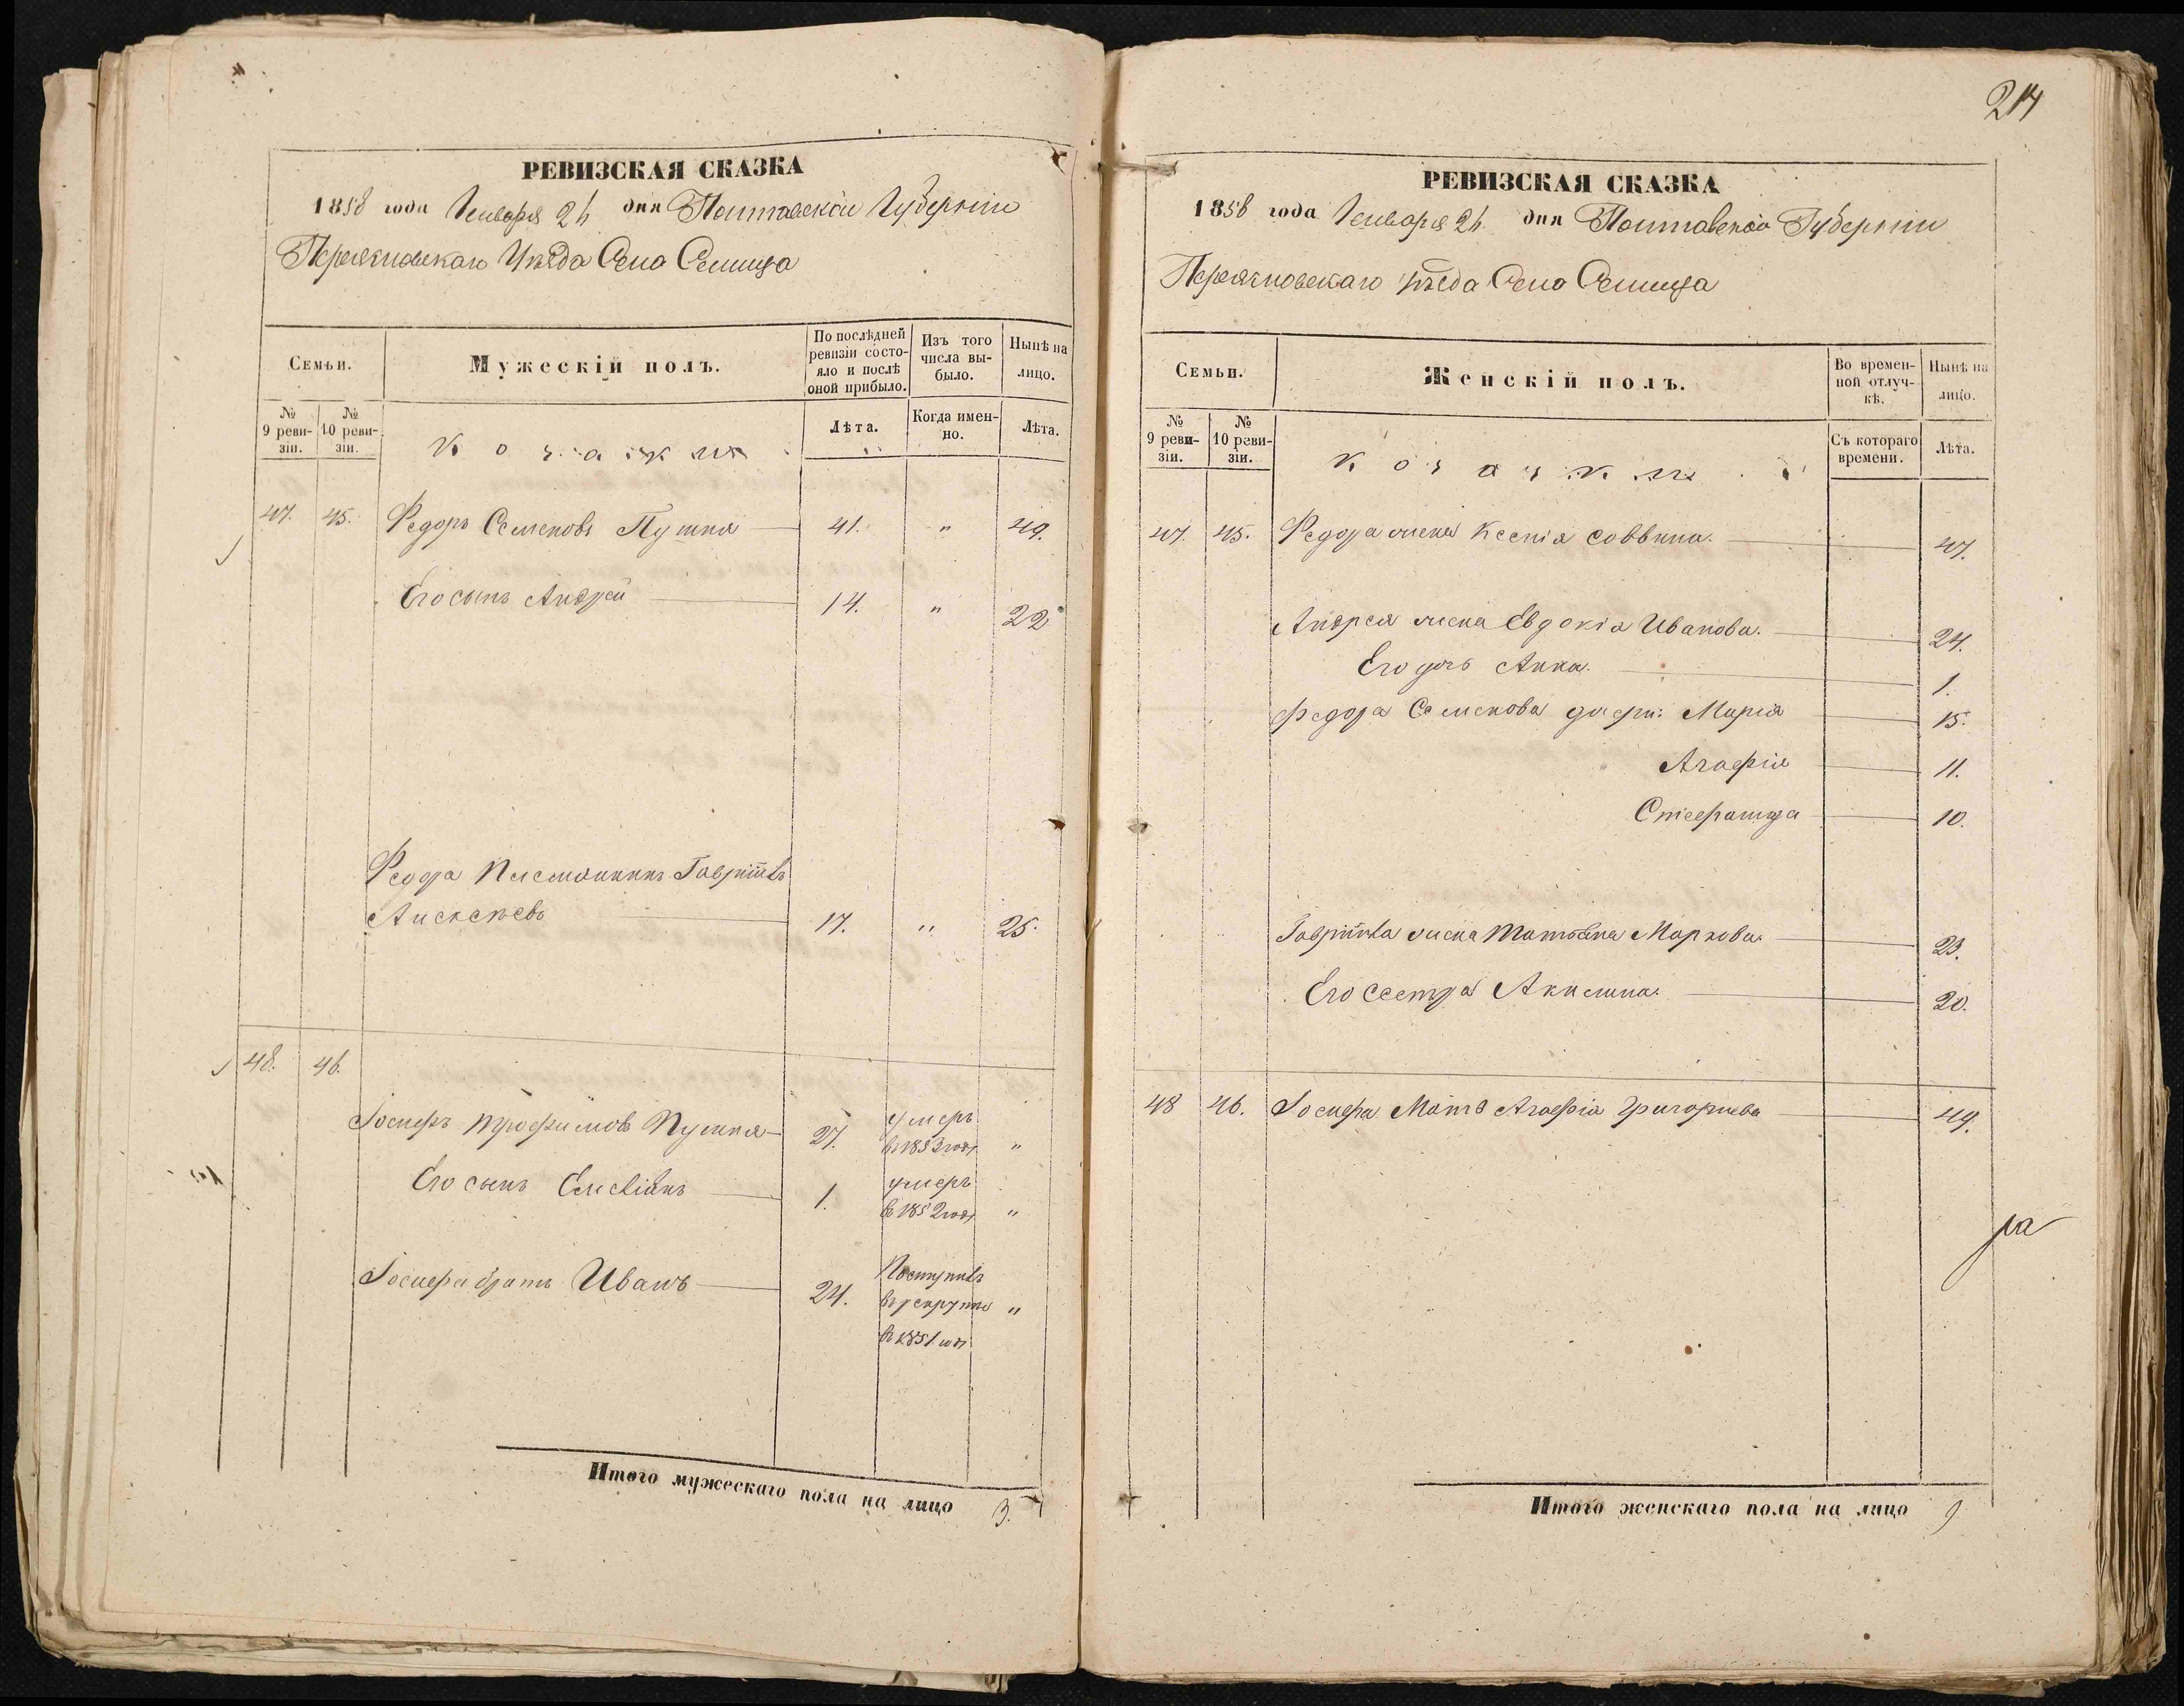 РЕВИЗСКАЯ СКАЗКА
1858 года Января 24 дня Полтавской Губерніи
Переяславскаго Уезда Село Семица
Семьи.
Мужескій полъ.
По послѣдней ревизіи состо-
яло и послѣ оной прибыло.
Изъ того числа вы-
было.
Нынѣ на лицо.
№ 9 реви-
зіи.
№ 10 реви-
зіи.
Козаки
Лѣта.
Когда имен-
но.
Лѣта.
47. 45. Федоръ Семеновъ Пушка 41. " 49.
Его сынъ Андрей 14. " 22
Федора Племянникъ Гавріилъ
Алексѣевъ 17. " 25.
48. 46.
Іосифъ Трофимовъ Пушка 27. умеръ
въ 1853 году "
Его сынъ Емеліянъ 1. умеръ
въ 1852 году "
Іосифа братъ Иванъ 24. Поступилъ
въ рекруты "
въ 1851 году
Итого мужескаго пола на лицо 3.
214
РЕВИЗСКАЯ СКАЗКА
1858 года Января 24 дня Полтавской Губерніи
Переяславскаго уѣзда Село Семица
Семьи.
Женскій полъ.
Во времен-
ной отлуч-
кѣ.
Нынѣ на лицо.
№ 9 реви-
зіи.
№ 10 реви-
зіи.
Козачки
Съ котораго времени.
Лѣта.
47. 45. Федора жена Ксенія Соввина. 47.
Андрея жена Евдокія Иванова. 24.
Его дочь Анна. 1.
Федора Семенова дочери: Марія 15.
Агафія 11.
Стефанида 10.
Гавріила жена Татьяна Маркова. 23.
Его сестра Акилина. 20.
48 46. Іосифа Мать Агафія Григорьева 49.
Итого женскаго пола на лицо 9